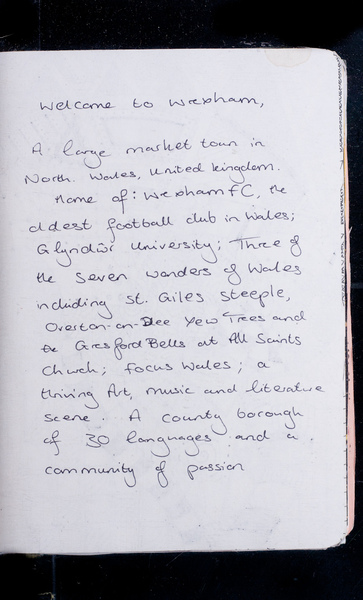 Welcome to Wrexham,
A large market town in
North Wales, United Kingdom.
Home of: Wrexham FC, the
oldest football club in Wales;
Glyndŵr University; Three of
the seven wonders of Wales
including St. Giles Steeple,
Overton-on-Dee Yew Trees and
the Gresford Bells at All Saints
Church; Focus Wales; a
thriving Art, music and literature
scene. A county borough
of 30 languages and a
community of passion